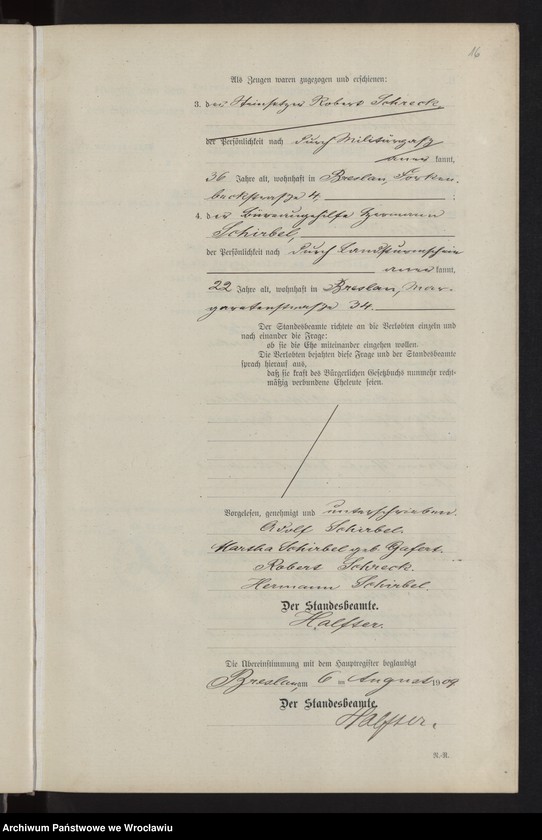 16
Als Zeugen waren zugezogen und erschienen:
3. der Steinsetzer Robert Schreck,
der Persönlichkeit nach durch Militärpaß
aner kannt,
36 Jahre alt, wohnhaft in Breslau, Förken-
beckstraße 4, ;
4. der Büreaugehilfe Hermann
Schirbel,
der Persönlichkeit nach durch Landsturmschein
aner kannt,
22 Jahre alt, wohnhaft in Breslau, Mar-
garetenstraße 34.
Der Standesbeamte richtete an die Verlobten einzeln und
nach einander die Frage:
ob sie die Ehe miteinander eingehen wollen.
Die Verlobten bejahten diese Frage und der Standesbeamte
sprach hierauf aus,
daß sie kraft des Bürgerlichen Gesetzbuchs nunmehr recht-
mäßig verbundene Eheleute seien.
Vorgelesen, genehmigt und unterschrieben.
Adolf Schirbel.
Martha Schirbel geb. Gafert.
Robert Schreck.
Hermann Schirbel.
Der Standesbeamte.
Halfter.
Die Übereinstimmung mit dem Hauptregister beglaubigt
Breslau, am 6 ten August 1909.
Der Standesbeamte.
Halfter.
R.-R.
Archiwum Państwowe we Wrocławiu